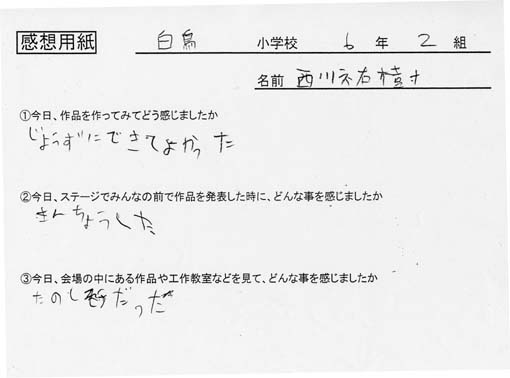 感想用紙 白鳥 小学校 6年 2組
名前 西川
①今日、作品を作ってみてどう感じましたか
じょうずにできてよかった
②今日、ステージでみんなの前で作品を発表した時に、どんな事を感じましたか
きんちょうした
③今日、会場の中にある作品や工作教室などを見て、どんな事を感じましたか
たのし だった